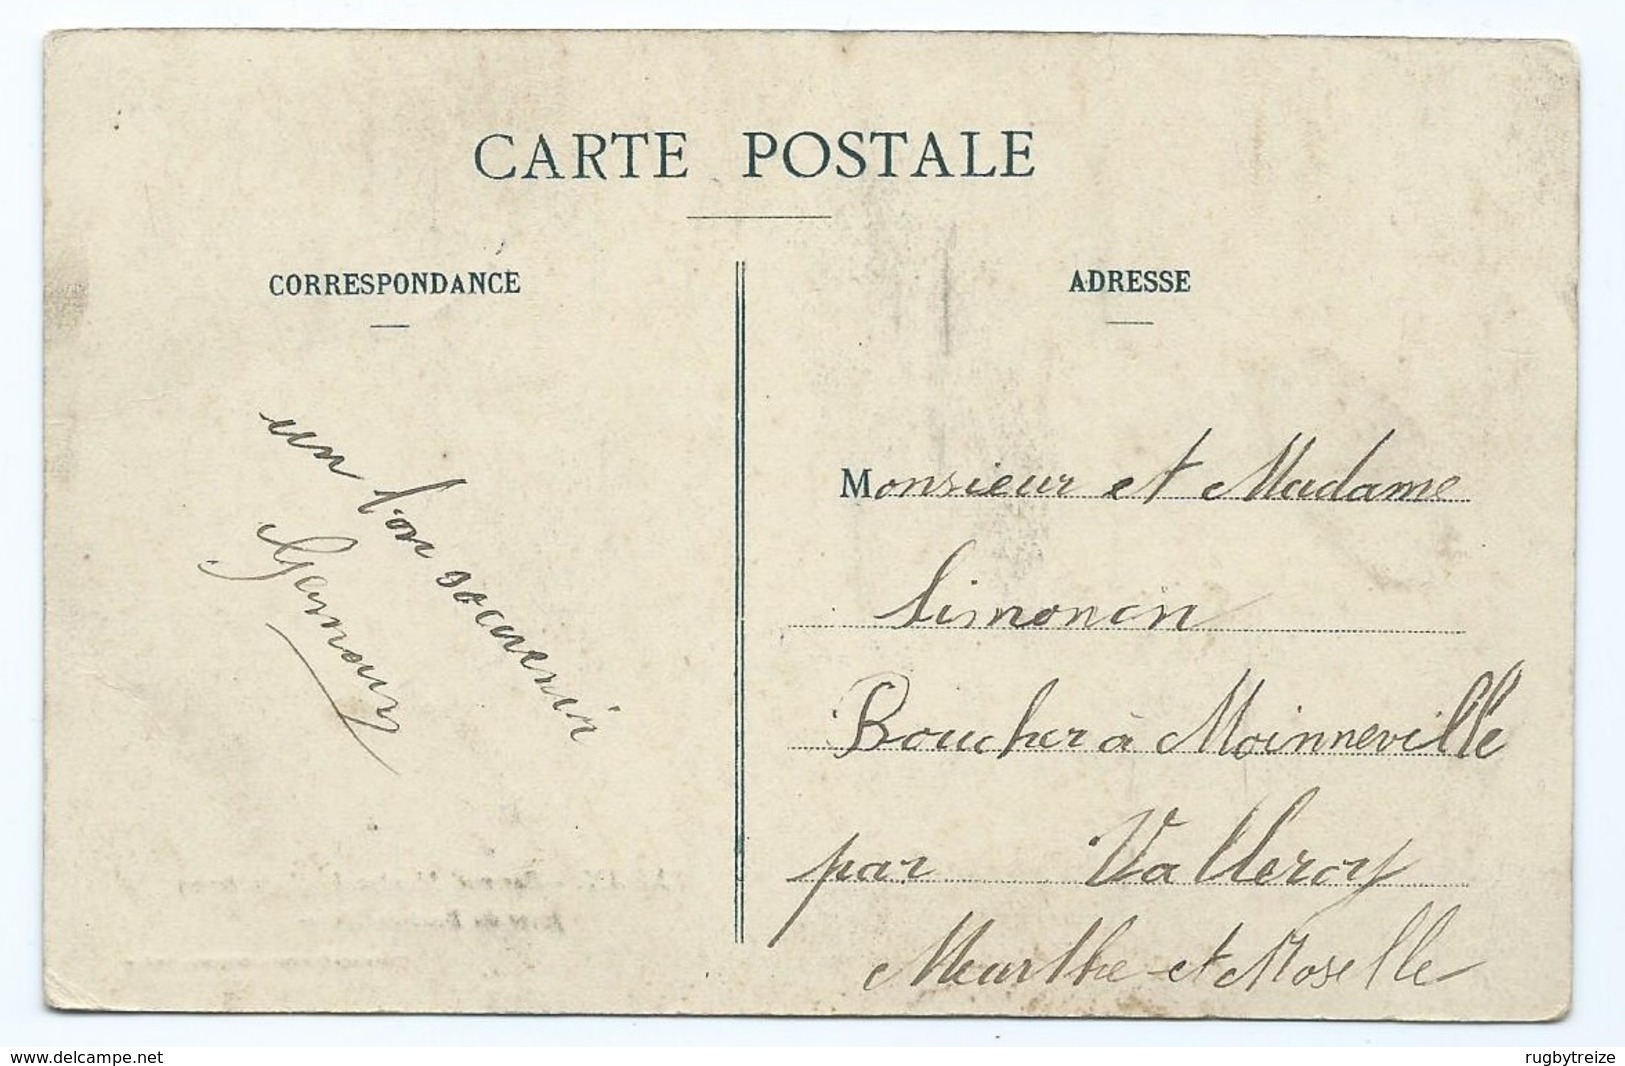 CARTE POSTALE
CORRESPONDANCE
un bon souvenir
ADRESSE
Monsieur et Madame
Simonin
Boucher à Moinneville
par Valleroy
Meurthe et Moselle
www.delcampe.net
rugbytreize